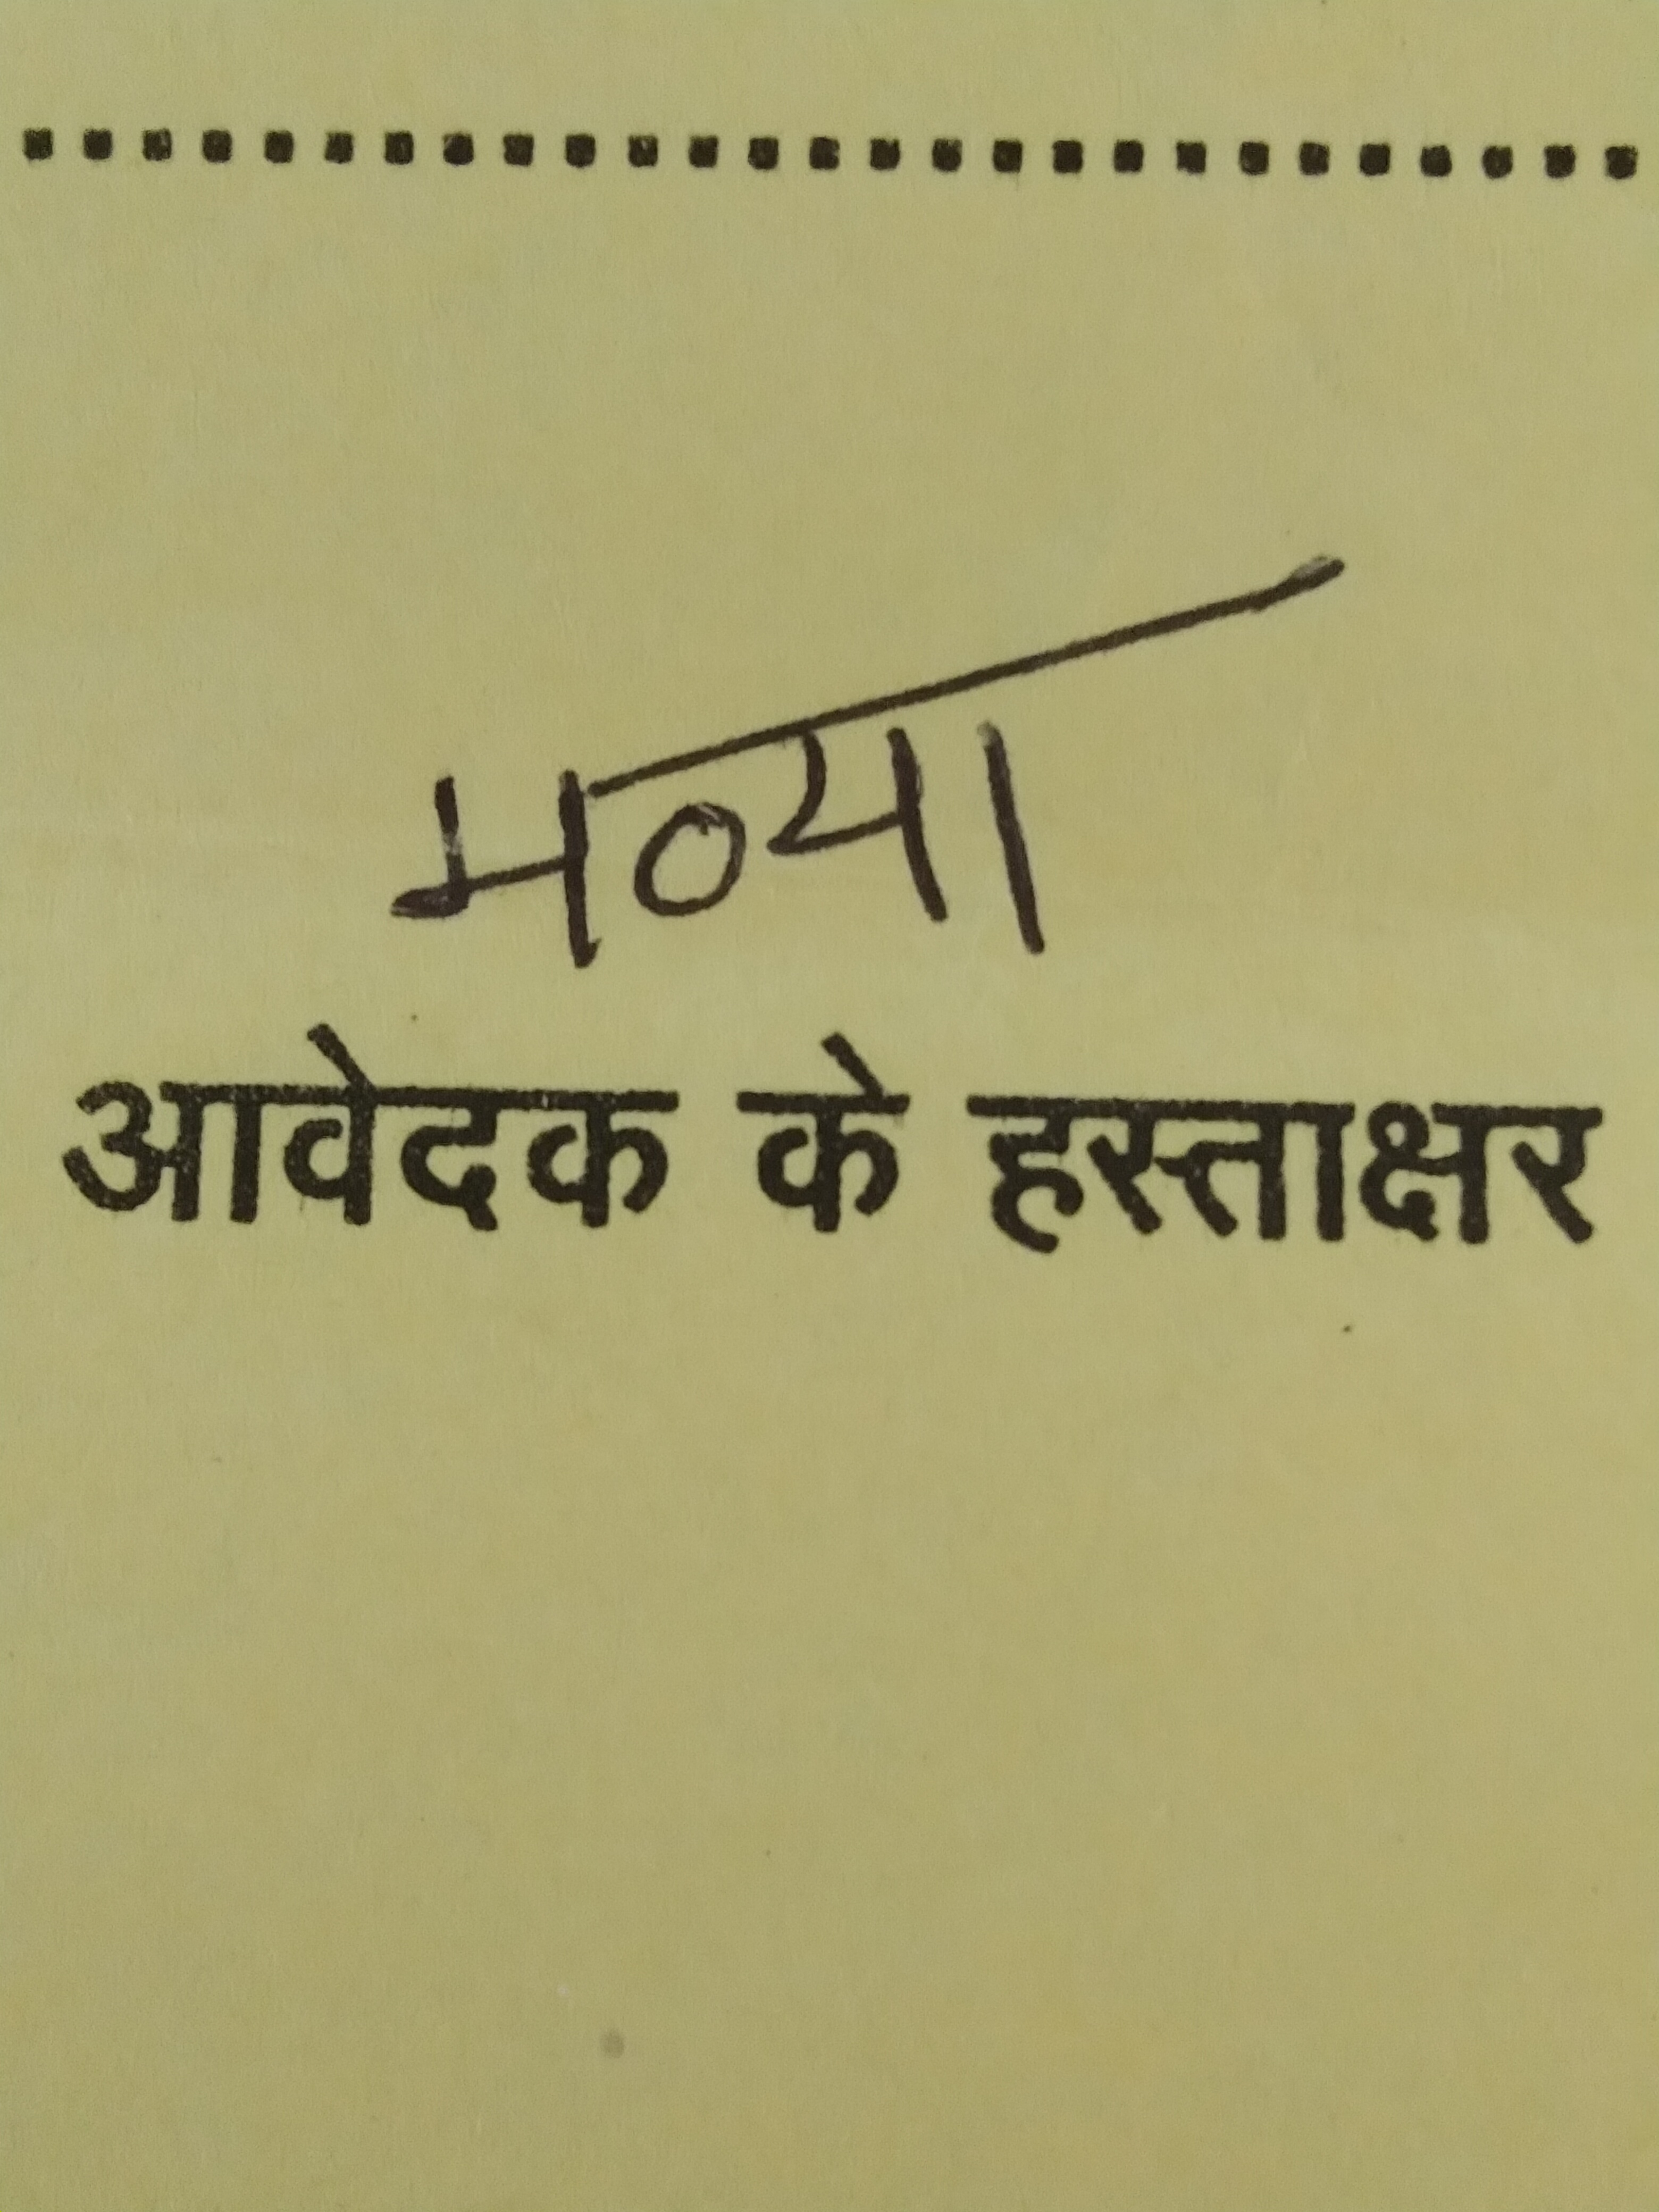 भव्या
आवेदक के हस्ताक्षर